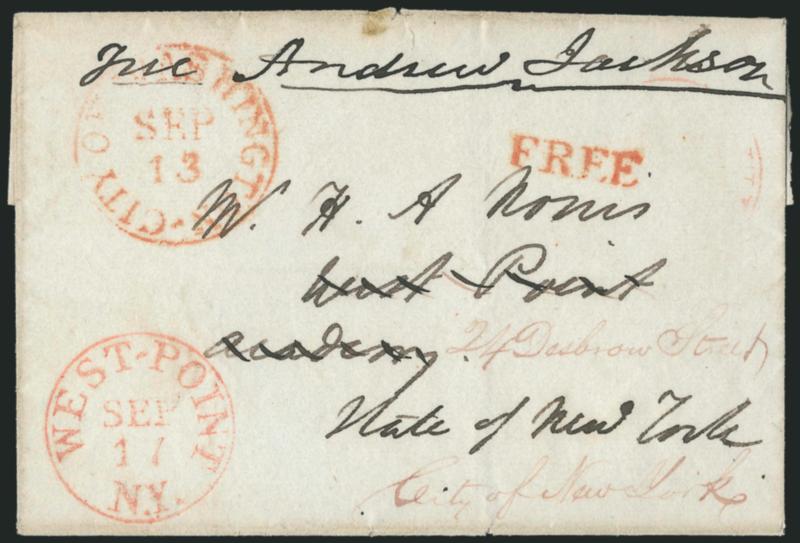 Free Andrew Jackson
CITY OF WASHINGTON
SEP
13
FREE
W. H. A Norris
West Point
Academy. 24 Desbrow Street
WEST-POINT
SEP
17
N.Y.
State of New York
City of New York